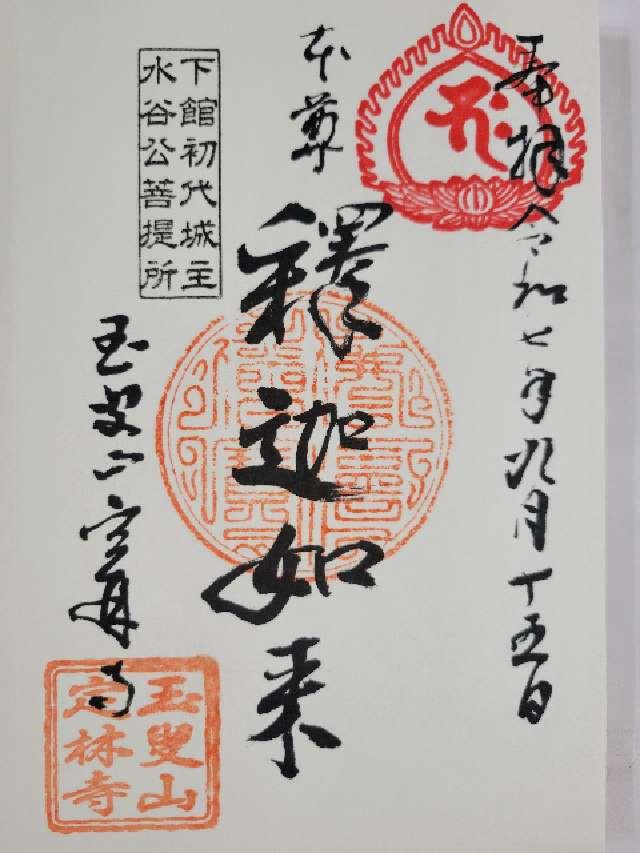 奉拝 令和七年九月十五日
本尊
釋迦如来
下館初代城主
水谷公菩提所
玉叟山 定林寺
玉叟山
定林寺